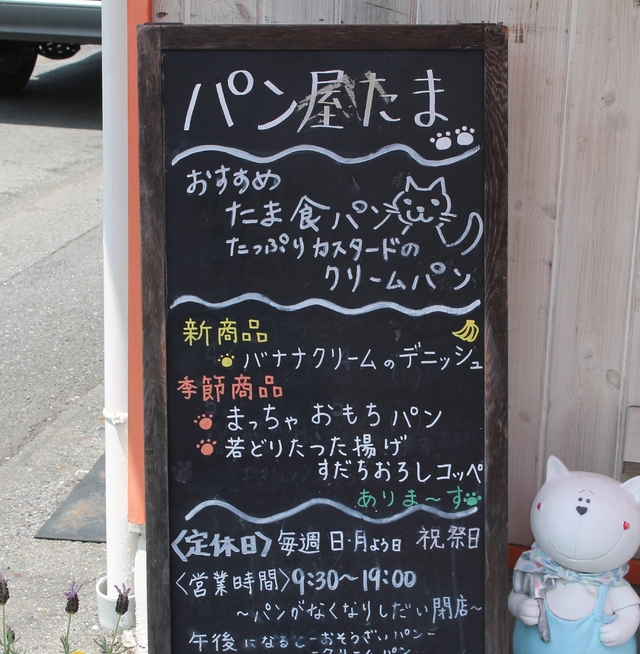 パン屋たま
おすすめ
たま食パン
たっぷりカスタードの
クリームパン
新商品
バナナクリームのデニッシュ
季節商品
まっちゃおもちパン
若どりたつた揚げ
すだちおろしコッペ
ありま〜す
〈定休日〉毎週日・月よう日 祝祭日
〈営業時間〉9:30〜19:00
〜パンがなくなりしだい閉店〜
午後になると−おそうざいパン−
−クリームパン